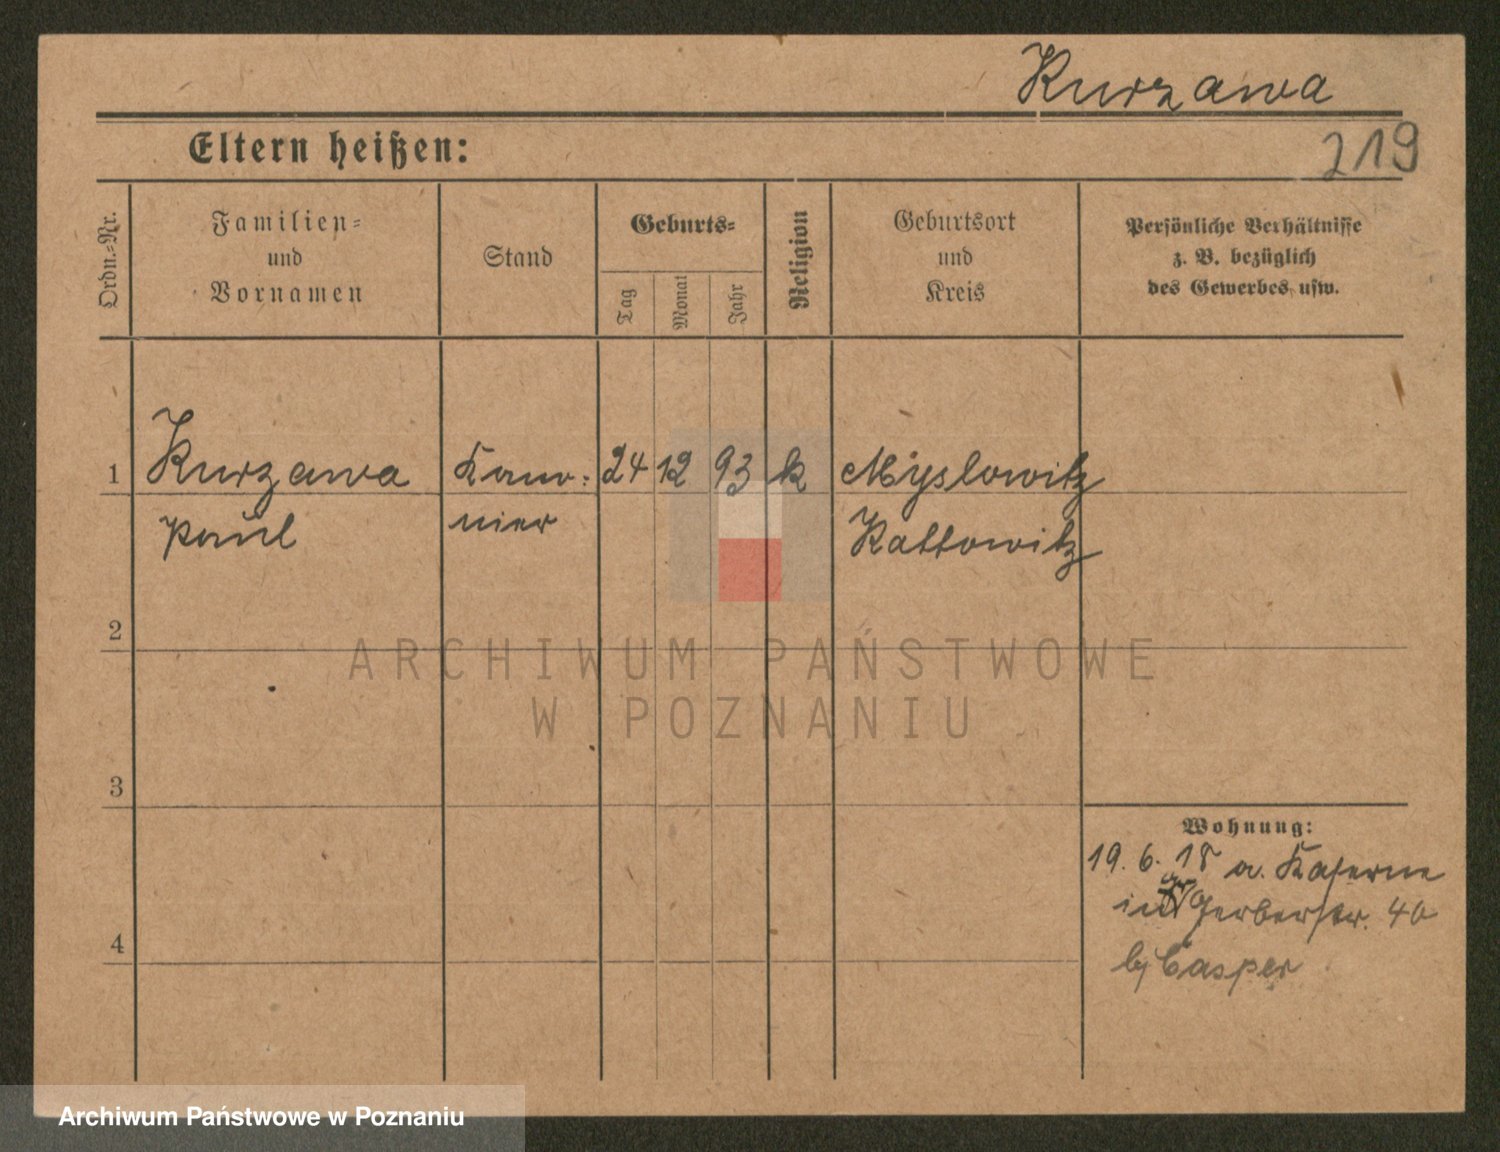 Kurzawa
219
Eltern heißen:
Ordn.-Nr.
Familien-
und
Vornamen
Stand
Geburts-
Tag
Monat
Jahr
Religion
Geburtsort
und
Kreis
Persönliche Verhältnisse
z. B. bezüglich
des Gewerbes usw.
1
Kurzawa
Paul
Kano-
nier
24
12
93
k
Myslowitz
Kattowitz
2
3
4
Wohnung:
19. 6. 18 a. Kaserne
in Gerberstr. 40
bj Casper
ARCHIWUM PAŃSTWOWE
W POZNANIU
Archiwum Państwowe w Poznaniu